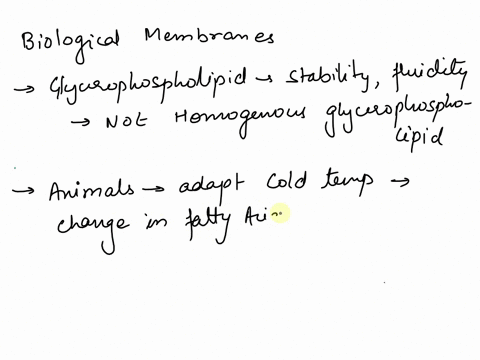 Biological Membranes
→ Glycerophospholipid → stability, fluidity
→ NOt Homogenous glycerophospho-
lipid
→ Animals → adapt cold temp →
change in fatty Aci